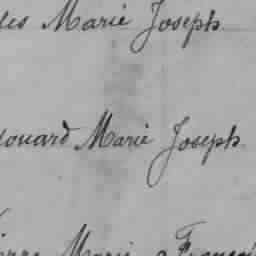 les Marie Joseph
douard Marie Joseph
ierre Marie